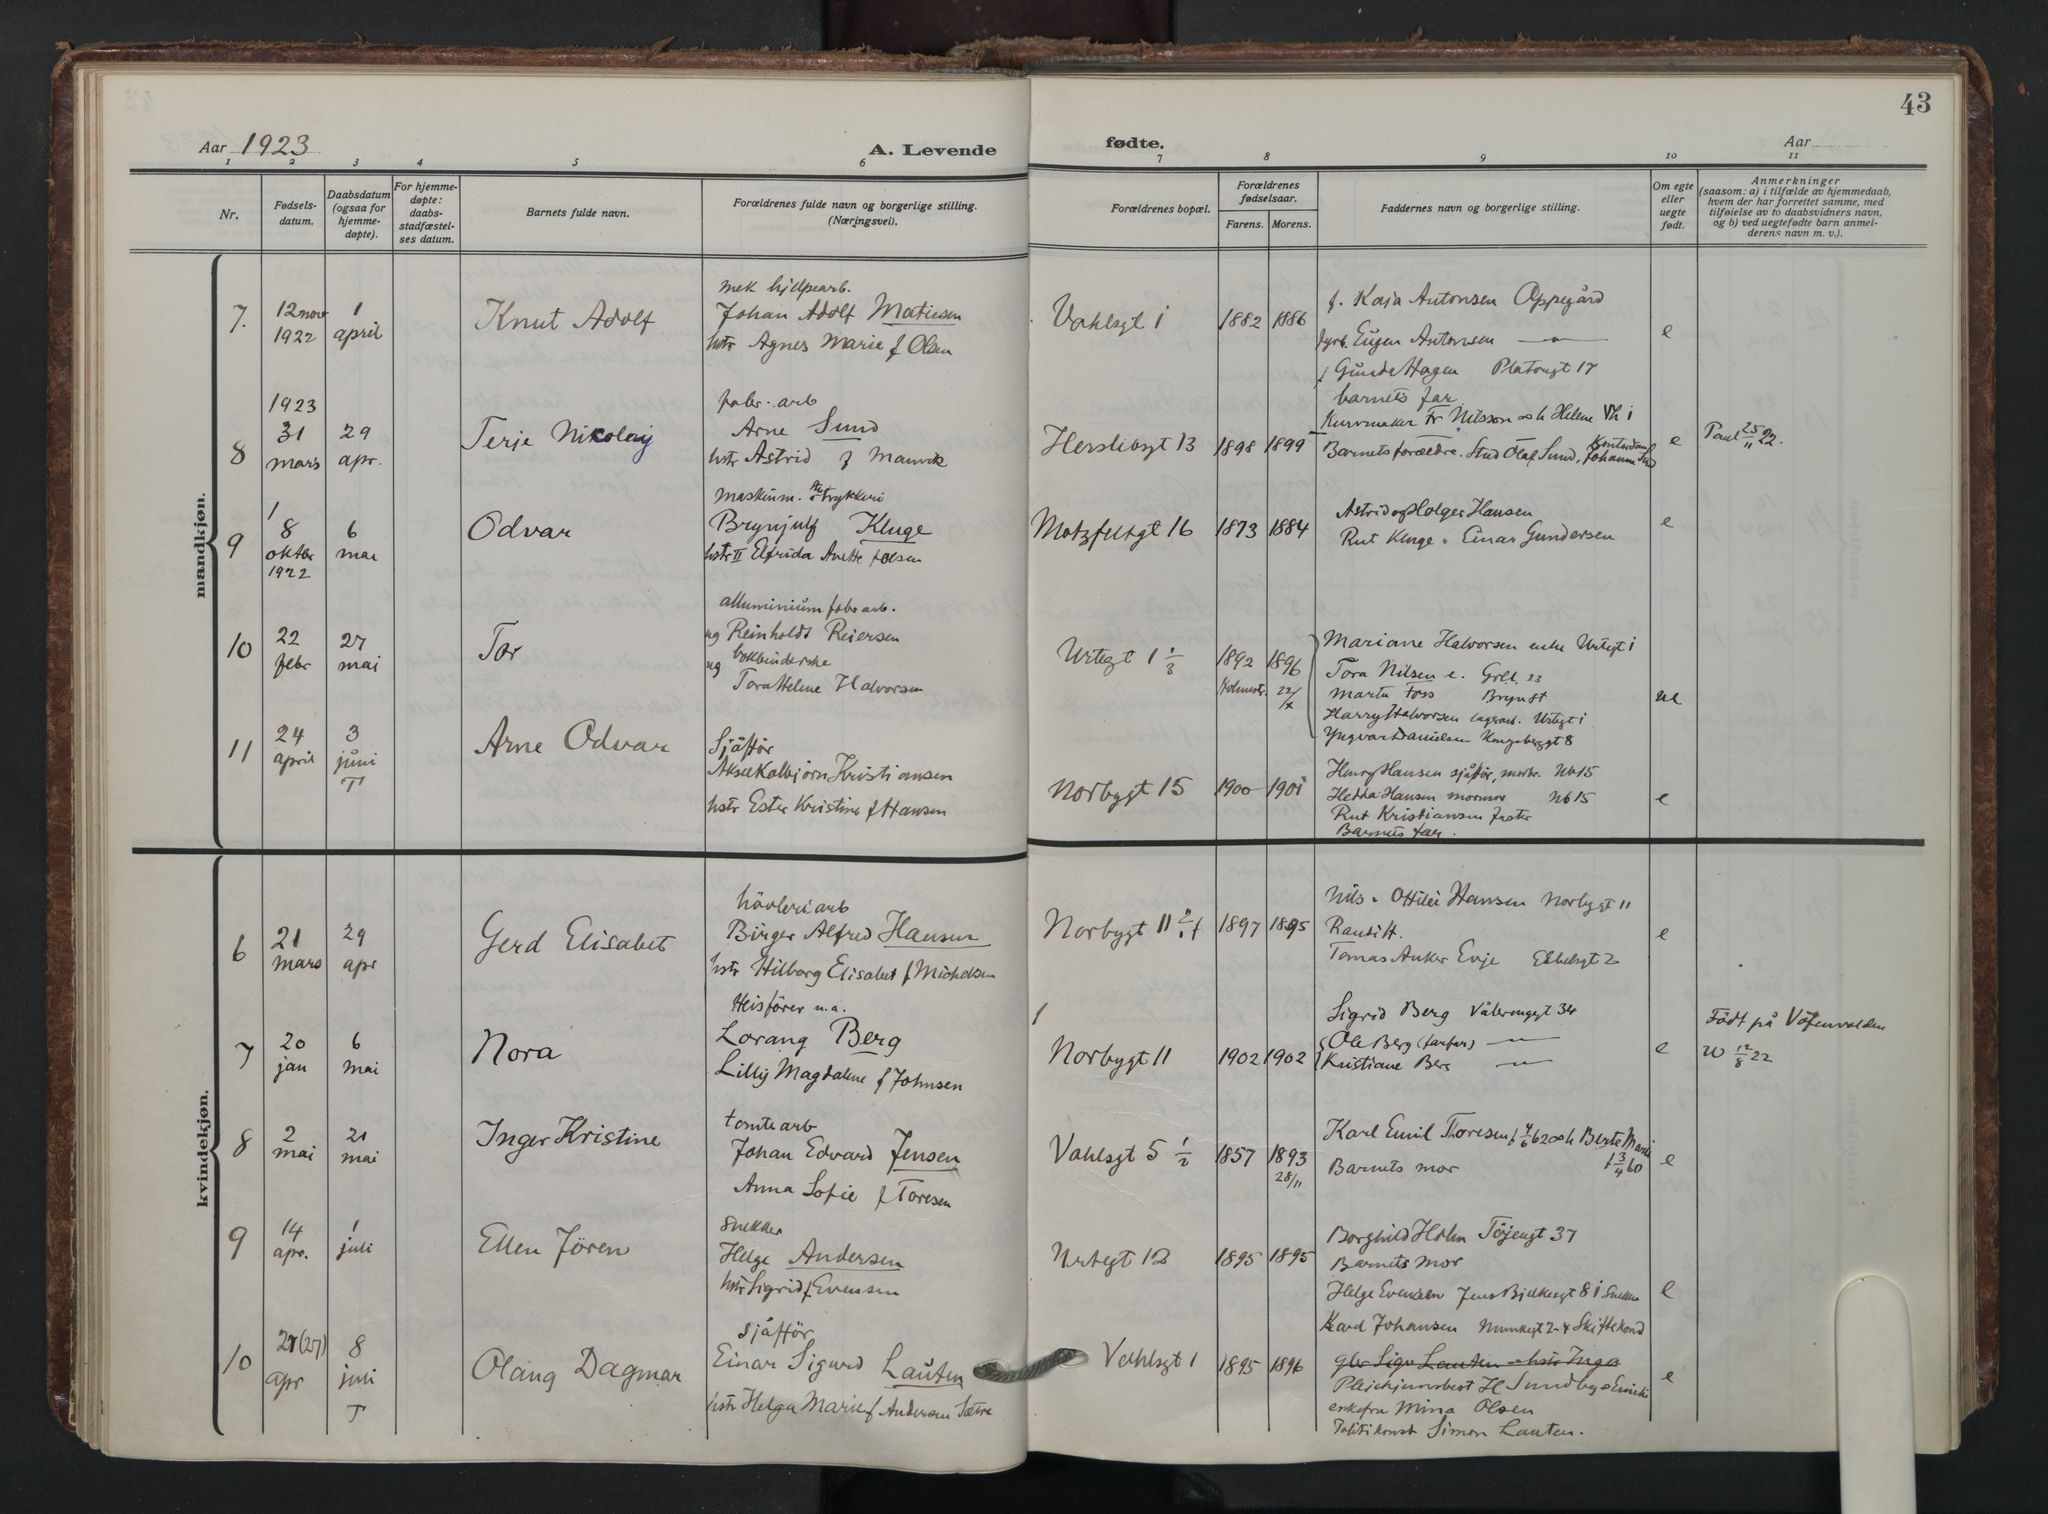 43
Aar 1923
A. Levende
fødte.
Aar
1 2 3 4 5 6 7 8 9 10 11
Nr.
Fødsels-
datum.
Daabsdatum
(ogsaa for
hjemme-
døpte).
For hjemme-
døpte:
daabs-
stadfæstel-
ses datum.
Barnets fulde navn.
Forældrenes fulde navn og borgerlige stilling.
(Næringsvei).
Forældrenes bopæl.
Forældrenes
fødselsaar.
Farens. Morens.
Faddernes navn og borgerlige stilling.
Om egte
eller
uegte
født.
Anmerkninger
(saasom: a) i tilfælde av hjemmedaab,
hvem der har forrettet samme, med
tilføielse av to daabsvidners navn,
og b) ved uegtefødte barn anmel-
derens navn m. v.).
mandkjøn.
7. 12 nov 1922
1 april
Knut Adolf
mek hjelpearb.
Johan Adolf Matiesen
hstr Agnes Marie f Olsen
Vahlsgt 1
1882 1886
f. Kaja Antonsen Oppegård
fyrb. Eugen Antonsen —"—
Gunda Hagen Platousgt 17
barnets far
e
8 1923 31 mars
29 apr.
Terje Nikolay
fabr. arb
Arne Sund
hstr Astrid f Manvik
Herslebsgt 13
1898 1899
Kurvmaker Fr Nilsson & h Helene Vh 1
Barnets forældre. Stud Olaf Sund, Johanne Sund
e
Paul 25/11 22.
9 8 oktbr 1922
6 mai
Odvar
maskinm. trykkeri
Brynjulf Kluge
hstr II Elfrida Anette f Olsen
Motzfeltsgt 16
1873 1884
Astrid og Holger Hansen
Rut Kluge. Einar Gundersen
e
10 22 febr
27 mai
Tor
alluminium fabr arb.
ug Reinholdt Reiersen
ug bokbinderske
Tora Helene Halvorsen
Urtegt 1 1/3
1892 1896
Holmestr. 22/x
Mariane Halvorsen enke Urtegt 1
Tora Nilsen e. Grl. 23
Marta Foss Bryn st
Harry Halvorsen lagerarb. Urtegt 1
Yngvar Danielsen Kongsberggt 8
ue
11 24 april
3 juni
T
Arne Odvar
Sjåffør
Aksel Kolbjørn Kristiansen
hstr Ester Kristine f Hansen
Norbygt 15
1900 1901
Henry Hansen sjåffør, morbr. Nb 15
Hedda Hansen mormor Nb 15
Rut Kristiansen faster
Barnets far.
e
kvindekjøn.
6 21 mars
29 apr
Gerd Elisabet
høvleriarb
Birger Alfred Hansen
hstr Hilborg Elisabet f Michelsen
Norbygt 11
1897 1895
Nils & Ottilie Hansen Norbygt 11
Randi H.
Tomas Anker Evje
e
7 20 jan
6 mai
Nora
Heisfører u.a.
Lorang Berg
Lilly Magdalene f Johnsen
Norbygt 11
1902 1902
Sigrid Berg Vålerenggt 34
Ole Berg (farfar) —"—
Kristiane Berg —"—
e
Født på
W 12/8 22
8 2 mai
21 mai
Inger Kristine
tomtearb
Johan Edvard Jensen
Anna Sofie f Toresen
Vahlsgt 5 1/2
1857 1893
28/11
Karl Emil Thoresen f 4/6 62 & h Berte Marie
f 3/4 60
Barnets mor
e
9 14 apr.
1 juli
Ellen Jören
snekker
Helge Andersen
hstr Sigrid f Evensen
Urtegt 12
1895 1895
Borghild Holm Töjengt 37
Barnets mor
Helge Evensen Jens Bjelkesgt 81 Snekker
e
10 27 (27) apr
8 juli
T
Olaug Dagmar
sjåffør
Einar Sigurd Lauten
hstr Helga Marie f Andersen Sætre
Vahlsgt 1
1895 1896
Karl Johansen Munkegt 2-4 Skiftekond
Sigv Lauten & hstr Inga
Pleiehjemsbest H Sundby
enkefru Mina Olsen
Politikonst Simon Lauten.
e